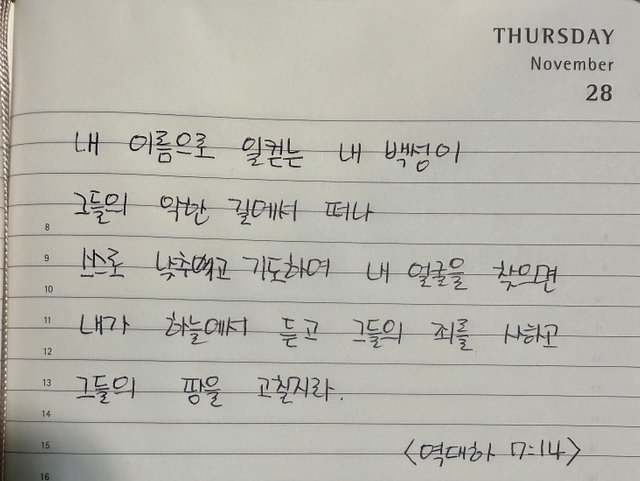 THURSDAY
November
28
내 이름으로 일컫는 내 백성이
그들의 악한 길에서 떠나
8
스스로 낮추고 기도하여 내 얼굴을 찾으면
9
10
내가 하늘에서 듣고 그들의 죄를 사하고
11
12
그들의 땅을 고칠지라.
13
14
<역대하 7:14>
15
16